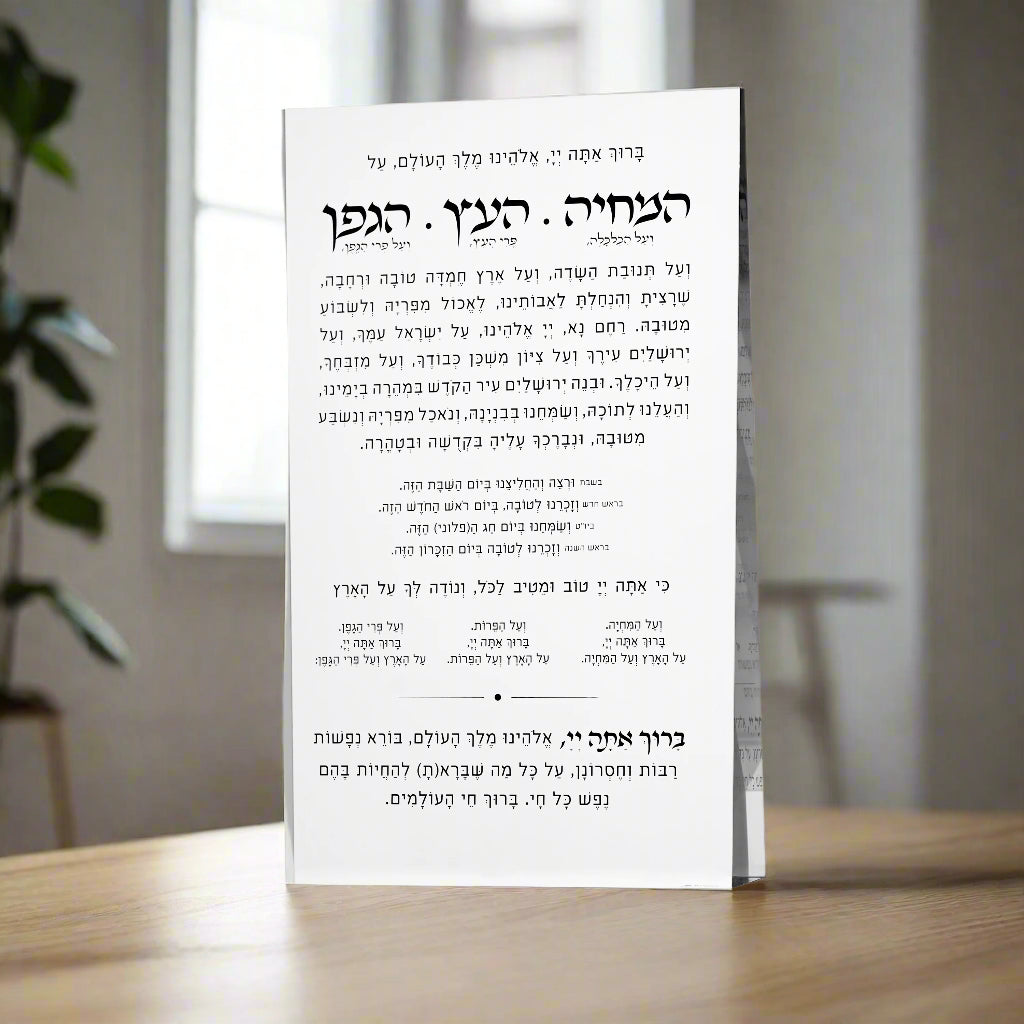 בָּרוּךְ אַתָּה יְיָ, אֱלֹהֵינוּ מֶלֶךְ הָעוֹלָם, עַל
המחיה . העץ . הגפן
וְעַל הַכַּלְכָּלָה, פְּרִי הָעֵץ, וְעַל פְּרִי הַגֶּפֶן,
וְעַל תְּנוּבַת הַשָּׂדֶה, וְעַל אֶרֶץ חֶמְדָּה טוֹבָה וּרְחָבָה,
שֶׁרָצִיתָ וְהִנְחַלְתָּ לַאֲבוֹתֵינוּ, לֶאֱכוֹל מִפִּרְיָהּ וְלִשְׂבּוֹעַ
מִטּוּבָהּ. רַחֶם נָא, יְיָ אֱלֹהֵינוּ, עַל יִשְׂרָאֵל עַמֶּךָ, וְעַל
יְרוּשָׁלַיִם עִירֶךָ וְעַל צִיּוֹן מִשְׁכַּן כְּבוֹדֶךָ, וְעַל מִזְבְּחֶךָ,
וְעַל הֵיכָלֶךָ. וּבְנֵה יְרוּשָׁלַיִם עִיר הַקֹּדֶשׁ בִּמְהֵרָה בְיָמֵינוּ,
וְהַעֲלֵנוּ לְתוֹכָהּ, וְשַׂמְּחֵנוּ בְּבִנְיָנָהּ, וְנֹאכַל מִפִּרְיָהּ וְנִשְׂבַּע
מִטּוּבָהּ, וּנְבָרֶכְךָ עָלֶיהָ בִּקְדֻשָּׁה וּבְטָהֳרָה.
בשבת וּרְצֵה וְהַחֲלִיצֵנוּ בְּיוֹם הַשַּׁבָּת הַזֶּה.
בראש חודש וְזָכְרֵנוּ לְטוֹבָה, בְּיוֹם רֹאשׁ הַחֹדֶשׁ הַזֶּה.
ביו"ט וְשַׂמְּחֵנוּ בְּיוֹם חַג הַ(פלוני) הַזֶּה.
בראש השנה וְזָכְרֵנוּ לְטוֹבָה בְּיוֹם הַזִּכָּרוֹן הַזֶּה.
כִּי אַתָּה יְיָ טוֹב וּמֵטִיב לַכֹּל, וְנוֹדֶה לְּךָ עַל הָאָרֶץ
וְעַל הַמִּחְיָה. וְעַל הַפֵּרוֹת. וְעַל פְּרִי הַגֶּפֶן.
בָּרוּךְ אַתָּה יְיָ, בָּרוּךְ אַתָּה יְיָ, בָּרוּךְ אַתָּה יְיָ,
עַל הָאָרֶץ וְעַל הַמִּחְיָה. עַל הָאָרֶץ וְעַל הַפֵּרוֹת. עַל הָאָרֶץ וְעַל פְּרִי הַגֶּפֶן:
בָּרוּךְ אַתָּה יְיָ, אֱלֹהֵינוּ מֶלֶךְ הָעוֹלָם, בּוֹרֵא נְפָשׁוֹת
רַבּוֹת וְחֶסְרוֹנָן, עַל כָּל מַה שֶּׁבָּרָא(תָ) לְהַחֲיוֹת בָּהֶם
נֶפֶשׁ כָּל חָי. בָּרוּךְ חֵי הָעוֹלָמִים.